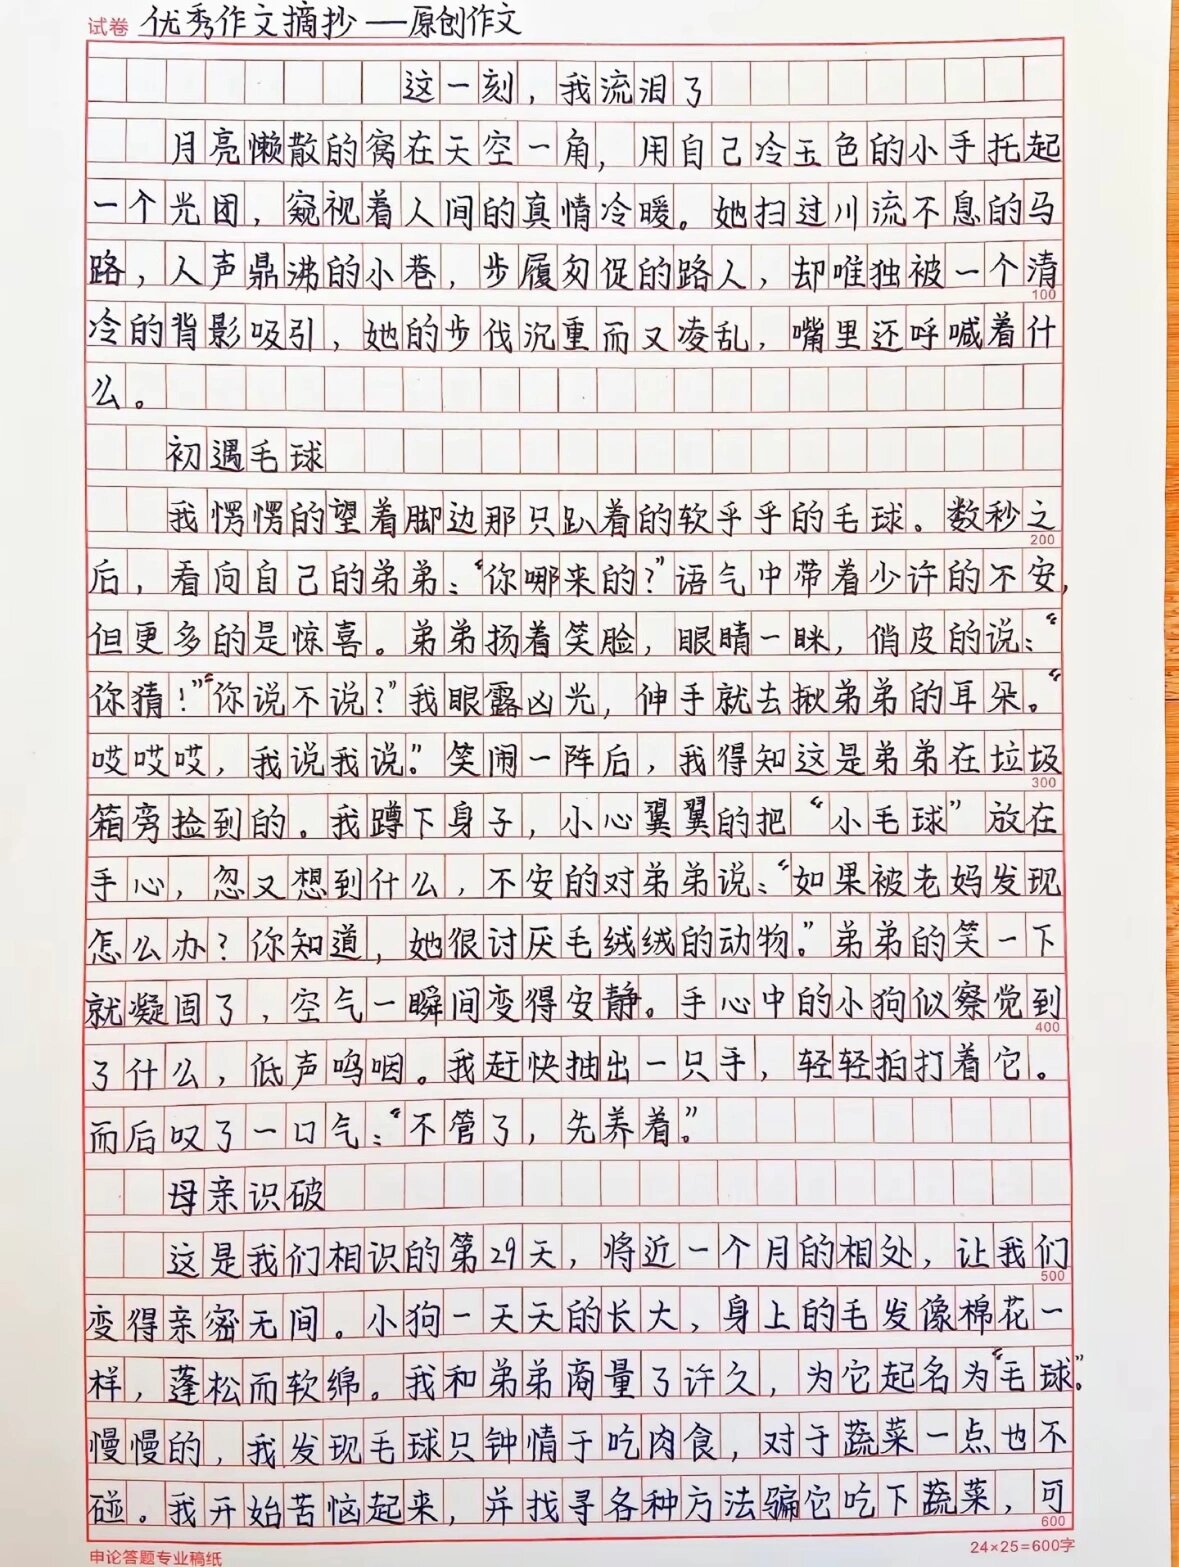 试卷 优秀作文摘抄——原创作文
这一刻，我流泪了
月亮懒散的窝在天空一角，用自己冷玉色的小手托起
一个光团，窥视着人间的真情冷暖。她扫过川流不息的马
路，人声鼎沸的小巷，步履匆促的路人，却唯独被一个清
100
冷的背影吸引，她的步伐沉重而又凌乱，嘴里还呼喊着什
么。
初遇毛球
我愣愣的望着脚边那只趴着的软乎乎的毛球。数秒之
200
后，看向自己的弟弟：“你哪来的？”语气中带着少许的不安，
但更多的是惊喜。弟弟扬着笑脸，眼睛一眯，俏皮的说：“
你猜！”“你说不说？”我眼露凶光，伸手就去揪弟弟的耳朵。“
哎哎哎，我说我说。”笑闹一阵后，我得知这是弟弟在垃圾
300
箱旁捡到的。我蹲下身子，小心翼翼的把“小毛球”放在
手心，忽又想到什么，不安的对弟弟说：“如果被老妈发现
怎么办？你知道，她很讨厌毛绒绒的动物。”弟弟的笑一下
就凝固了，空气一瞬间变得安静。手心中的小狗似察觉到
400
了什么，低声呜咽。我赶快抽出一只手，轻轻拍打着它。
而后叹了一口气：“不管了，先养着。”
母亲识破
这是我们相识的第29天，将近一个月的相处，让我们
500
变得亲密无间。小狗一天天的长大，身上的毛发像棉花一
样，蓬松而软绵。我和弟弟商量了许久，为它起名为“毛球。”
慢慢的，我发现毛球只钟情于吃肉食，对于蔬菜一点也不
碰。我开始苦恼起来，并找寻各种方法骗它吃下蔬菜，可
600
申论答题专业稿纸
24×25=600字